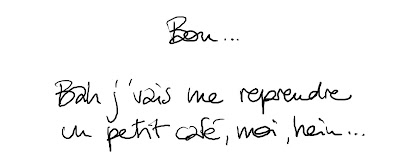 Bon...
Bah j'vais me reprendre
un petit café, moi, hein...